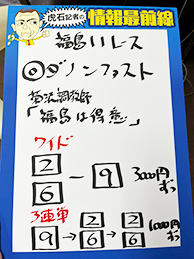 虎石記者の情報最前線
福島11レース
◎ダノンファスト
菊沢調教師
「福島は得意」
ワイド
2
6 - 9 3000円ずつ
3連単
9→2 6→2 6 1000円ずつ